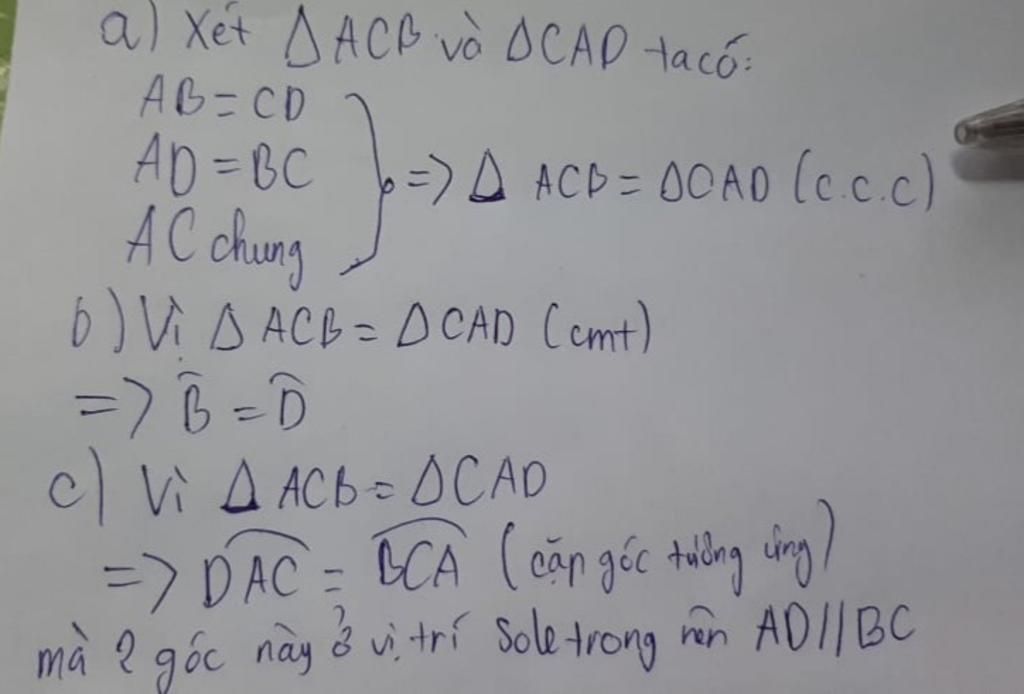 a) Xét Δ ACB và ΔCAD ta có:
AB = CD
AD = BC
AC chung
=> Δ ACB = ΔCAD (c.c.c)
b) Vì Δ ACB = ΔCAD (cmt)
=> B̂ = D̂
c) Vì Δ ACB = ΔCAD
=> D͡AC = B͡CA (cặp góc tương ứng)
mà 2 góc này ở vị trí sole trong nên AD//BC